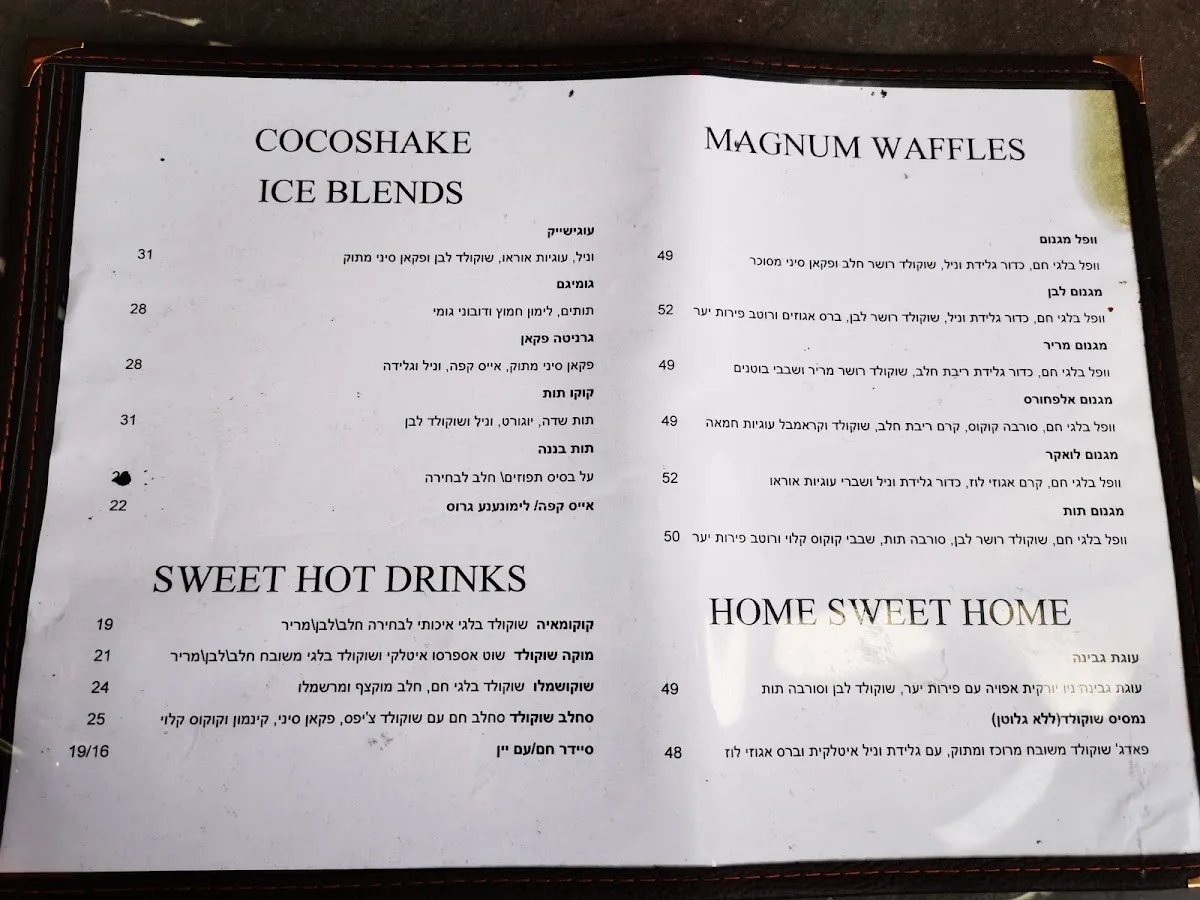 COCOSHAKE
ICE BLENDS
עוגישייק
וניל, עוגיות אוראו, שוקולד לבן ופקאן סיני מתוק 31
גומיגם
תותים, לימון חמוץ ודובוני גומי 28
גרניטה פקאן
פקאן סיני מתוק, אייס קפה, וניל וגלידה 28
קוקו תות
תות שדה, יוגורט, וניל ושוקולד לבן 31
תות בננה
על בסיס תפוזים\ חלב לבחירה
אייס קפה/ לימונענע גרוס 22
SWEET HOT DRINKS
קוקומאיה שוקולד בלגי איכותי לבחירה חלב\לבן\מריר 19
מוקה שוקולד שוט אספרסו איטלקי ושוקולד בלגי משובח חלב\לבן\מריר 21
שוקושמלו שוקולד בלגי חם, חלב מוקצף ומרשמלו 24
סחלב שוקולד סחלב חם עם שוקולד צ'יפס, פקאן סיני, קינמון וקוקוס קלוי 25
סיידר חם/עם יין 19/16
MAGNUM WAFFLES
וופל מגנום
וופל בלגי חם, כדור גלידת וניל, שוקולד רושר חלב ופקאן סיני מסוכר 49
מגנום לבן
וופל בלגי חם, כדור גלידת וניל, שוקולד רושר לבן, ברס אגוזים ורוטב פירות יער 52
מגנום מריר
וופל בלגי חם, כדור גלידת ריבת חלב, שוקולד רושר מריר ושבבי בוטנים 49
מגנום אלפחורס
וופל בלגי חם, סורבה קוקוס, קרם ריבת חלב, שוקולד וקראמבל עוגיות חמאה 49
מגנום לואקר
וופל בלגי חם, קרם אגוזי לוז, כדור גלידת וניל ושברי עוגיות אוראו 52
מגנום תות
וופל בלגי חם, שוקולד רושר לבן, סורבה תות, שבבי קוקוס קלוי ורוטב פירות יער 50
HOME SWEET HOME
עוגת גבינה
עוגת גבינה ניו יורקית אפויה עם פירות יער, שוקולד לבן וסורבה תות 49
נמסיס שוקולד(ללא גלוטן)
פאדג' שוקולד משובח מרוכז ומתוק, עם גלידת וניל איטלקית וברס אגוזי לוז 48